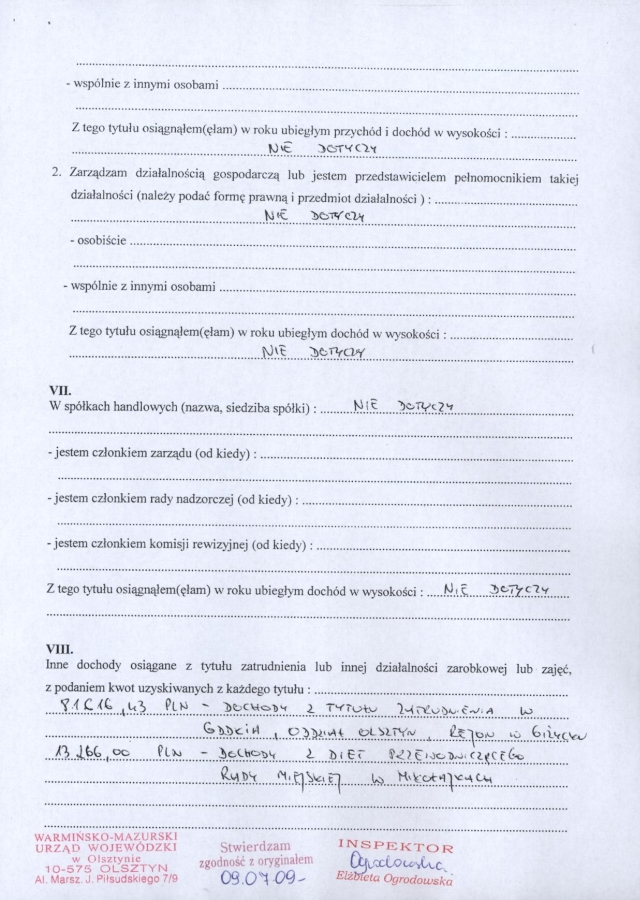 - wspólnie z innymi osobami
Z tego tytułu osiągnąłem(ęłam) w roku ubiegłym przychód i dochód w wysokości :
NIE DOTYCZY
2. Zarządzam działalnością gospodarczą lub jestem przedstawicielem pełnomocnikiem takiej
działalności (należy podać formę prawną i przedmiot działalności ) :
NIE DOTYCZY
- osobiście
- wspólnie z innymi osobami
Z tego tytułu osiągnąłem(ęłam) w roku ubiegłym dochód w wysokości :
NIE DOTYCZY
VII.
W spółkach handlowych (nazwa, siedziba spółki) : NIE DOTYCZY
- jestem członkiem zarządu (od kiedy) :
- jestem członkiem rady nadzorczej (od kiedy) :
- jestem członkiem komisji rewizyjnej (od kiedy) :
Z tego tytułu osiągnąłem(ęłam) w roku ubiegłym dochód w wysokości : NIE DOTYCZY
VIII.
Inne dochody osiągane z tytułu zatrudnienia lub innej działalności zarobkowej lub zajęć,
z podaniem kwot uzyskiwanych z każdego tytułu :
PLN - DOCHODY Z TYTUŁU ZATRUDNIENIA W
GDDKiA , ODDZIAŁ OLSZTYN , REJON W GIŻYCKU
PLN - DOCHODY Z DIET PRZEWODNICZĄCEGO
RADY MIEJSKIEJ W MIKOŁAJKACH
WARMIŃSKO-MAZURSKI
URZĄD WOJEWÓDZKI
w Olsztynie
10-575 OLSZTYN
Al. Marsz. J. Piłsudskiego 7/9
Stwierdzam
zgodność z oryginałem
09.07.09-
INSPEKTOR
Ogrodowska
Elżbieta Ogrodowska